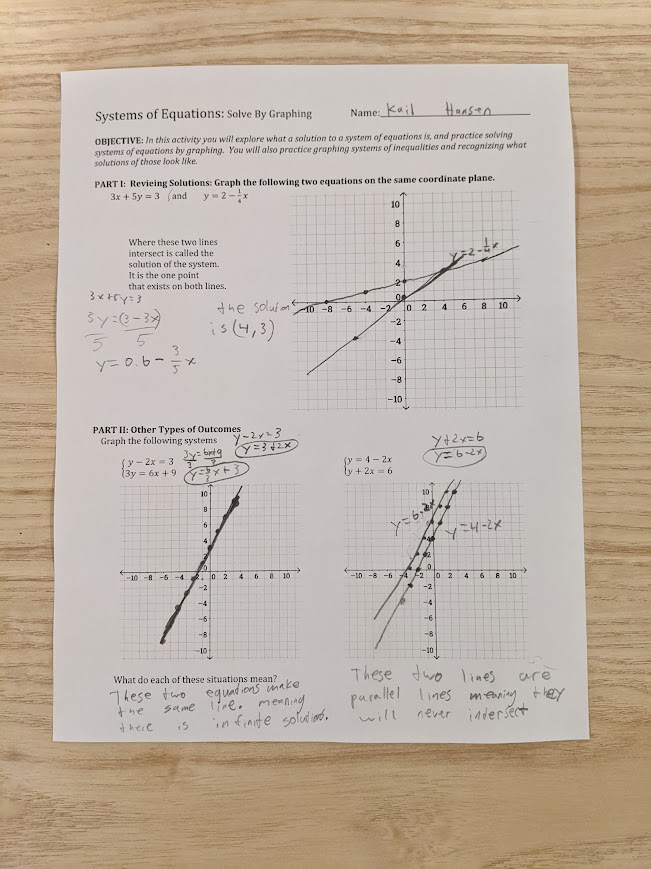 Systems of Equations: Solve By Graphing Name: Kail Hansen
OBJECTIVE: In this activity you will explore what a solution to a system of equations is, and practice solving
systems of equations by graphing. You will also practice graphing systems of inequalities and recognizing what
solutions of those look like.
PART I: Revieing Solutions: Graph the following two equations on the same coordinate plane.
3x + 5y = 3 and y = 2 − 1/4 x
Where these two lines
intersect is called the
solution of the system.
It is the one point
that exists on both lines.
3x+5y=3
5y=(3-3x)
5 5
y=0.6- 3/5 x
the solution
is (4,3)
y=2-1/4x
10
8
6
4
2
0
-10 -8 -6 -4 -2 0 2 4 6 8 10
-2
-4
-6
-8
-10
PART II: Other Types of Outcomes
Graph the following systems
y-2x=3
y=3+2x
y − 2x = 3
3y = 6x + 9
3y=6x+9
3 3
y=6/3x+3
10
8
6
4
2
0
-10 -8 -6 -4 -2 0 2 4 6 8 10
-2
-4
-6
-8
-10
y = 4 − 2x
y + 2x = 6
y+2x=6
y=6-2x
y=6-2x
y=4-2x
10
8
6
4
2
0
-10 -8 -6 -4 -2 0 2 4 6 8 10
-2
-4
-6
-8
-10
What do each of these situations mean?
These two equations make
the same line. meaning
there is infinite solutions.
These two lines are
parallel lines meaning they
will never intersect